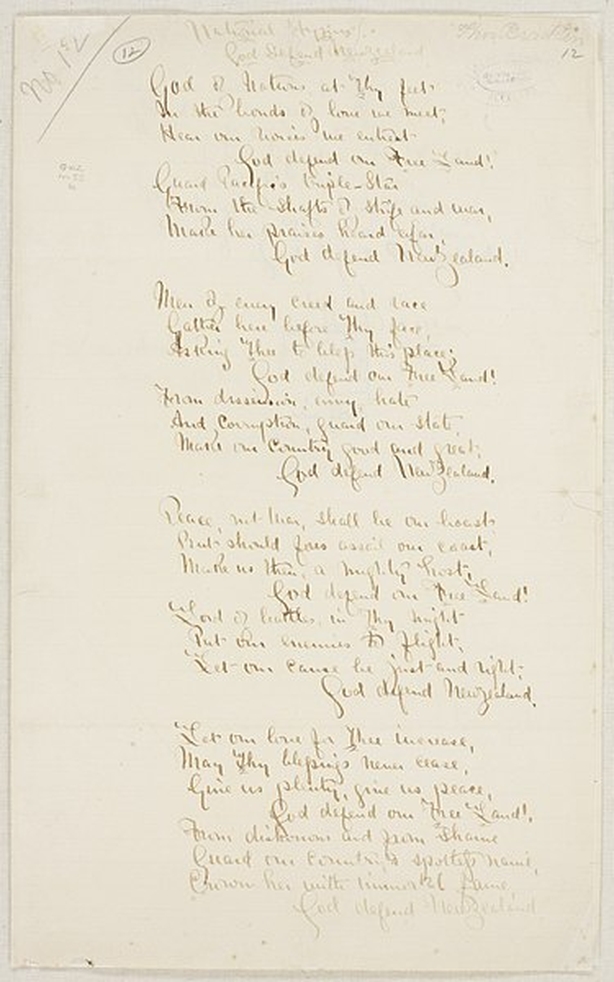 No 12
12
National Hymns/.
God Defend New Zealand
12
God of Nations at Thy feet
In the bonds of love we meet,
Hear our voices we entreat
God defend our Free Land!
Guard Pacific's triple-Star
From the Shafts of Strife and war,
Make her praises heard afar,
God defend New Zealand.
Men of every creed and race
Gather here before Thy face,
Asking Thee to bless this place;
God defend our Free Land!
From dissension, envy, hate
And Corruption, guard our State,
Make our Country good and great,
God defend New Zealand.
Peace, not War, shall be our boast
But should foes assail our coast,
Make us then, a mighty host,
God defend our Free Land!
Lord of battles in Thy might
Put our enemies to flight,
Let our cause be just and right,
God defend New Zealand.
Let our love for Thee increase,
May Thy blessings never cease,
Give us plenty, give us peace,
God defend our Free Land!
From dishonour and from Shame
Guard our Country's spotless name,
Crown her with immortal fame
God defend New Zealand